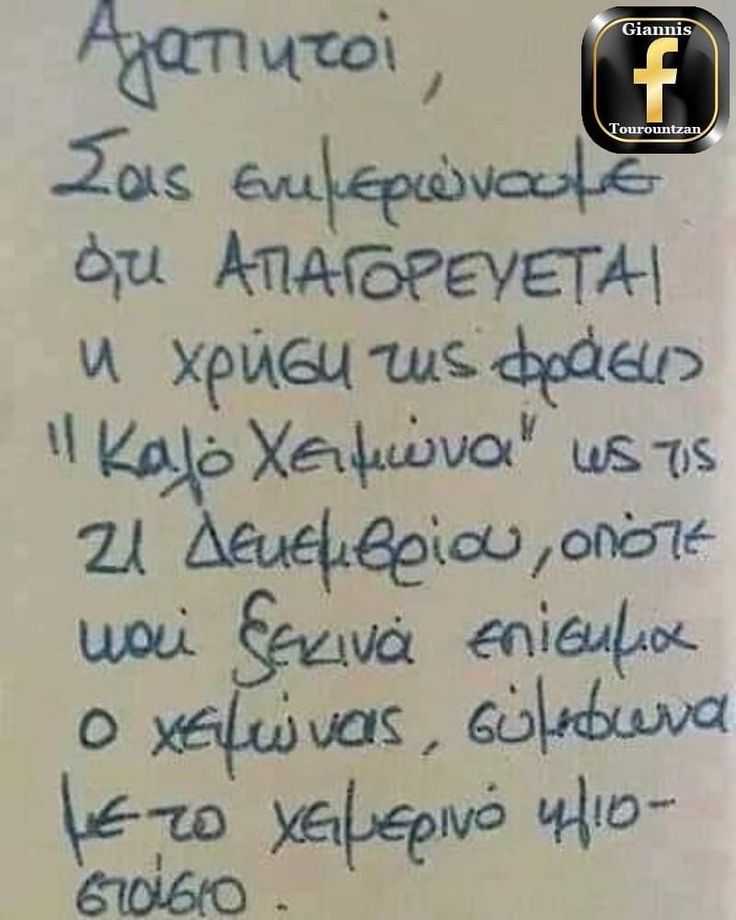 Αγαπητοί,
Giannis
f
Tourountzan
Σας ενημερώνουμε
ότι ΑΠΑΓΟΡΕΥΕΤΑΙ
η χρήση της φράσης
"Καλό Χειμώνα" ως τις
21 Δεκεμβρίου, οπότε
και ξεκινά επίσημα
ο χειμώνας, σύμφωνα
με το χειμερινό ηλιο-
στάσιο.